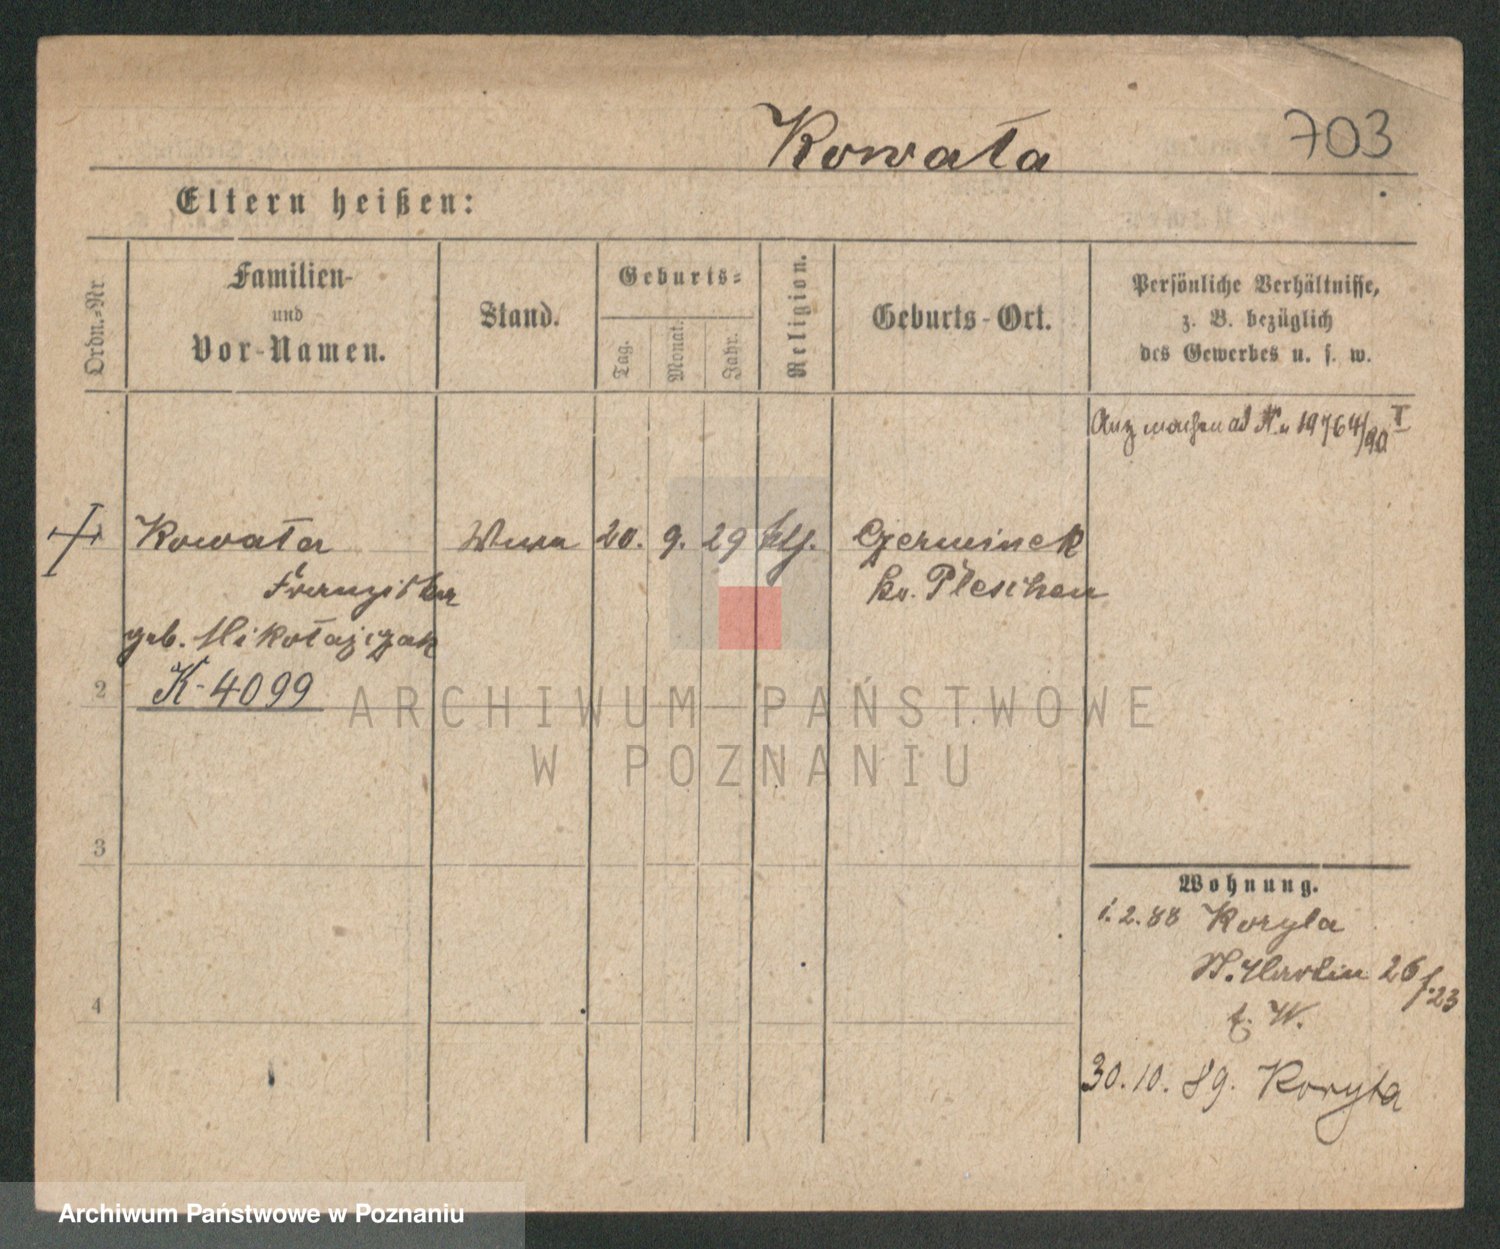 Kowała 703
Eltern heißen:
Ordn.-Nr
Familien-
und
Vor-Namen.
Stand.
Geburts-
Tag.
Monat.
Jahr.
Religion.
Geburts-Ort.
Persönliche Verhältnisse,
z. B. bezüglich
des Gewerbes u. s. w.
19764/90 I
Kowała 20. 9. 29 Czerminek
Franziska Kr. Pleschen
geb. Mikołajczak
2 K-4099
3
4
Wohnung.
1. 2. 88 Koryta
St. Martin 26 f. 23
z. W.
30. 10. 89. Koryta
ARCHIWUM PAŃSTWOWE
W POZNANIU
Archiwum Państwowe w Poznaniu